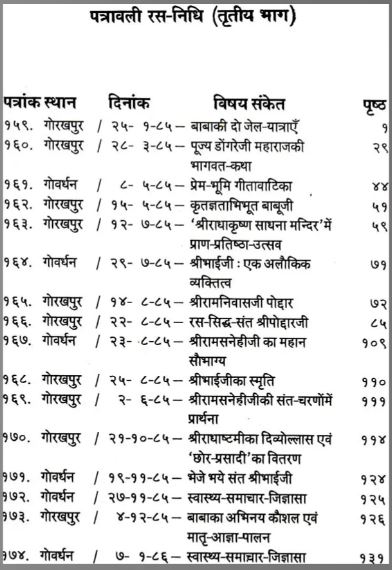 पत्रावली रस-निधि (तृतीय भाग)
पत्रांक स्थान दिनांक विषय संकेत पृष्ठ
१५९. गोरखपुर / २५- १-८५ – बाबाकी दो जेल-यात्राएँ १
१६०. गोरखपुर / २८- ३-८५ – पूज्य डोंगरेजी महाराजकी
भागवत-कथा २९
१६१. गोवर्धन / ८- ५-८५ – प्रेम-भूमि गीतावाटिका ४४
१६२. गोरखपुर / १५- ५-८५ – कृतज्ञताभिभूत बाबूजी ५१
१६३. गोरखपुर / १२- ७-८५ – 'श्रीराधाकृष्ण साधना मन्दिर'में ५९
प्राण-प्रतिष्ठा-उत्सव
१६४. गोवर्धन / २९- ७-८५ – श्रीभाईजी : एक अलौकिक ७१
व्यक्तित्व
१६५. गोरखपुर / १४- ८-८५ – श्रीरामनिवासजी पोद्दार ७२
१६६. गोरखपुर / २२- ८-८५ – रस-सिद्ध-संत श्रीपोद्दारजी ८५
१६७. गोवर्धन / २३- ८-८५ – श्रीरामसनेहीजी का महान १०९
सौभाग्य
१६८. गोरखपुर / २५- ८-८५ – श्रीभाईजीका स्मृति ११०
१६९. गोरखपुर / २- ६-८५ – श्रीरामसनेहीजीकी संत-चरणोंमें १११
प्रार्थना
१७०. गोरखपुर / २१-१०-८५ – श्रीराधाष्टमीका दिव्योल्लास एवं ११४
'छोर-प्रसादी'का वितरण
१७१. गोवर्धन / १९-११-८५ – भेजे भये संत श्रीभाईजी १२४
१७२. गोवर्धन / २७-११-८५ – स्वास्थ्य-समाचार-जिज्ञासा १२५
१७३. गोरखपुर / ४-१२-८५ – बाबाका अभिनय कौशल एवं १२६
मातृ-आज्ञा-पालन
१७४. गोवर्धन / ७- १-८६ – स्वास्थ्य-समाचार-जिज्ञासा १३१